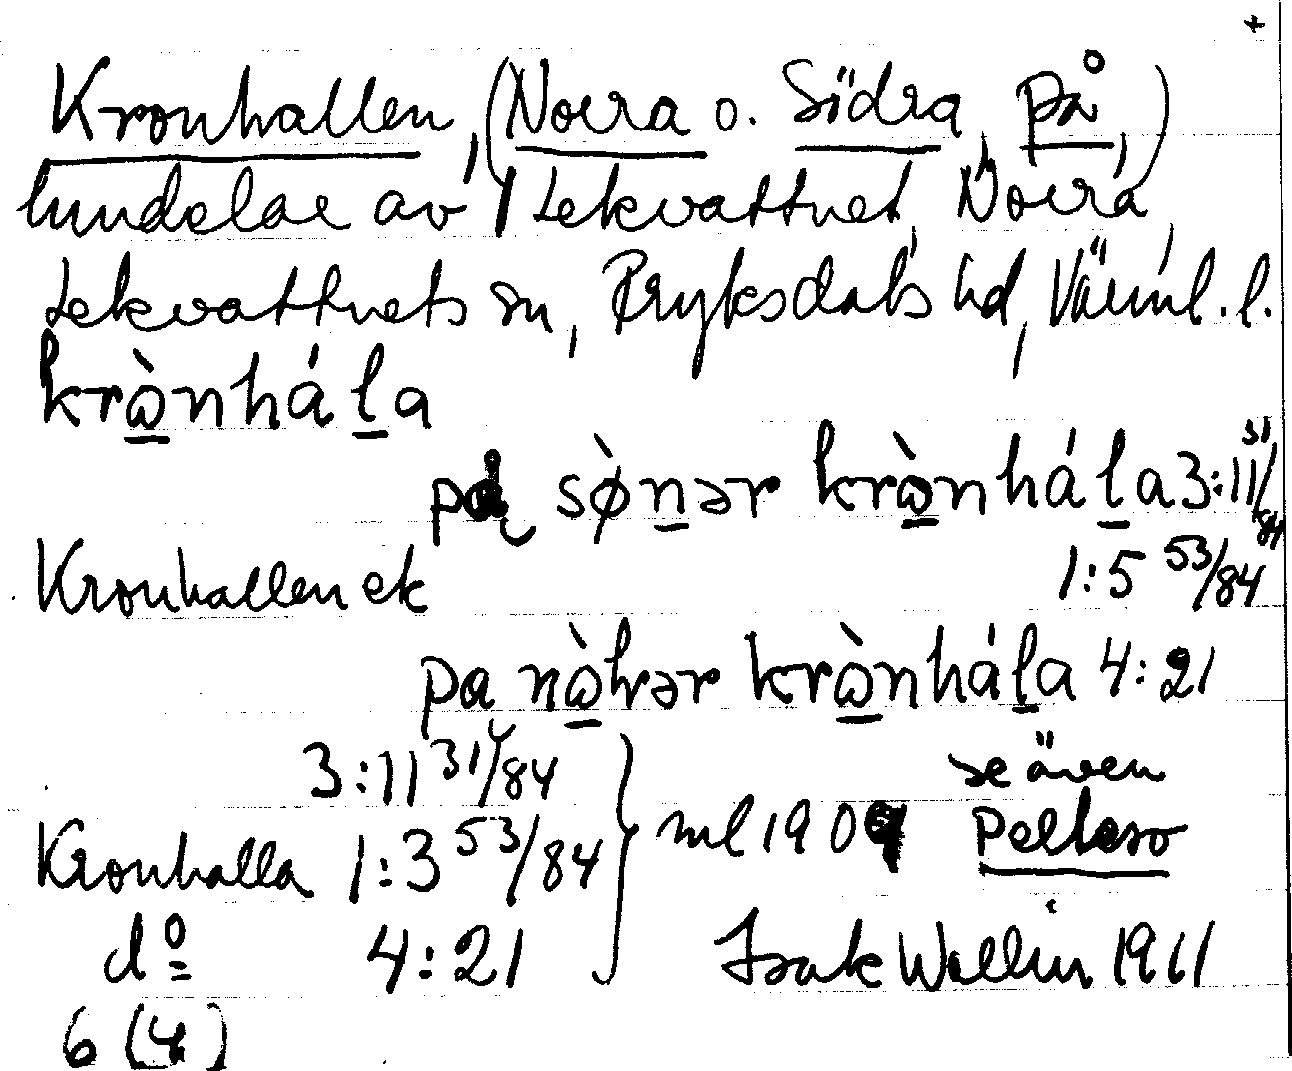 +
Kronhallen, (Norra o. Södra, på,)
lundelar av Lekvattnet, Norra,
Lekvattnets sn, Fryksdals hd, Värml. l.
krònhála
på sø̀nər krònhála 3:11 31/84
Kronhallen ek 1:5 53/84
pa nòhrər krònhála 4:21
3:11 31/84 se även
Kronhalla 1:3 53/84 ml 1909 Pelleso
do 4:21 Isak Wallin 1911
6 (4)